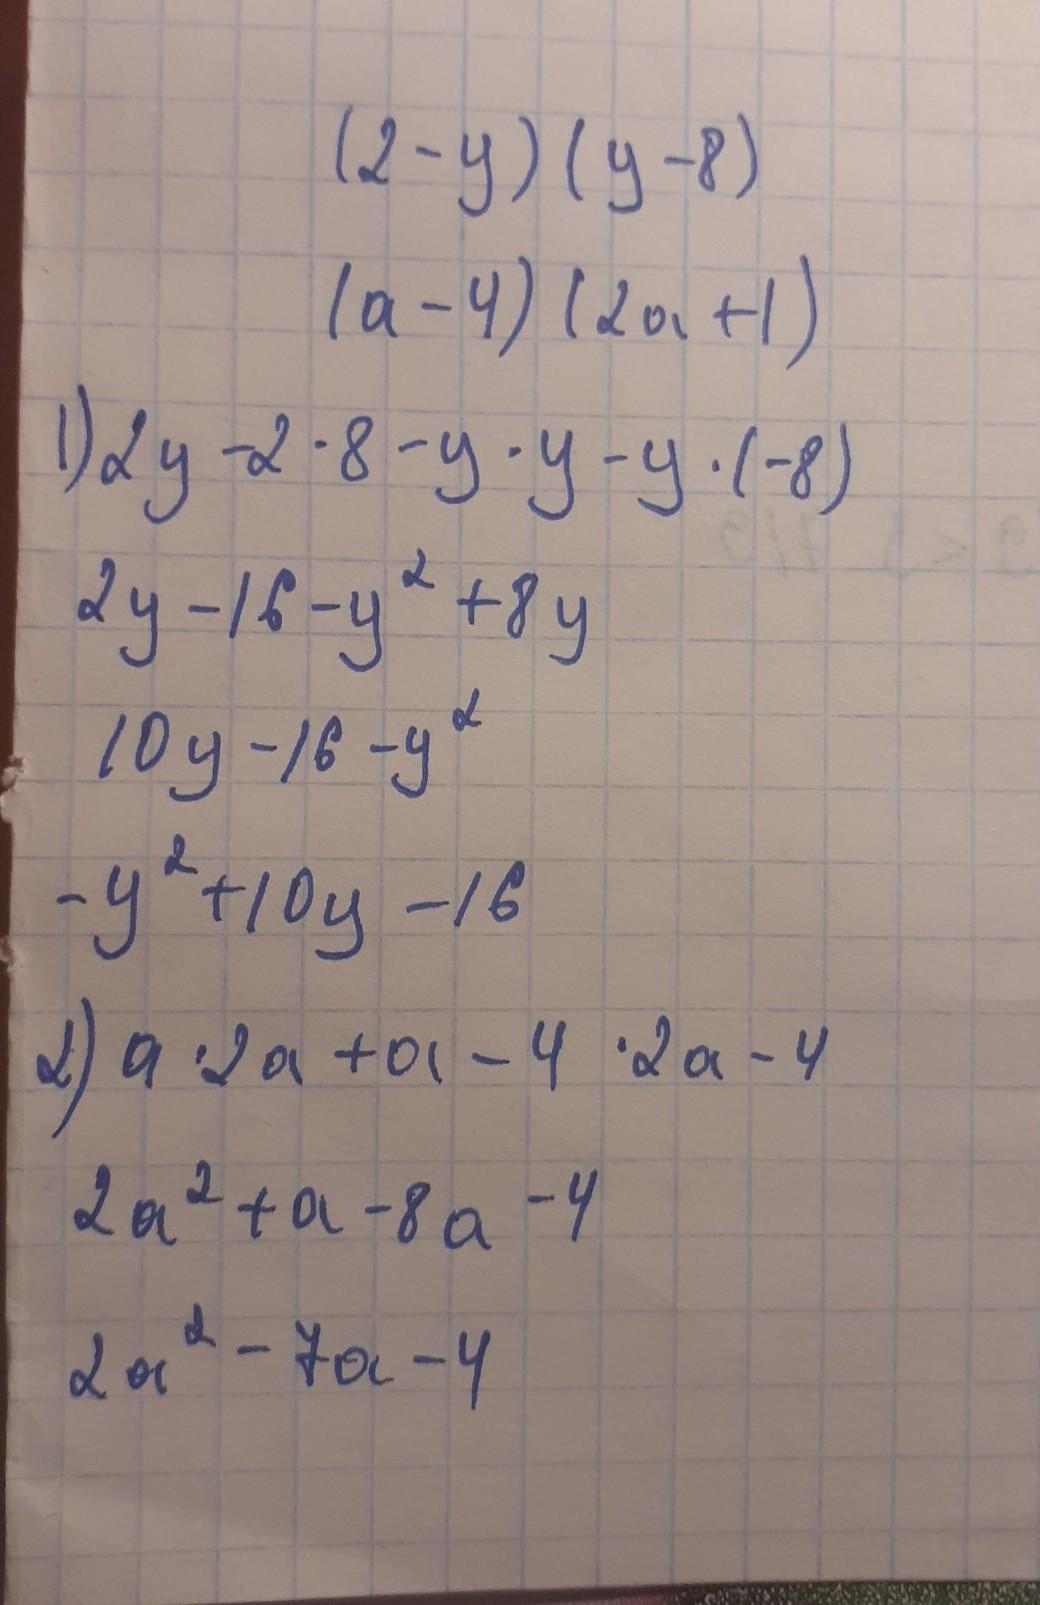 (2-y)(y-8)
(a-4)(2a+1)
1) 2y-2·8-y·y-y·(-8)
2y-16-y²+8y
10y-16-y²
-y²+10y-16
2) a·2a+a-4·2a-4
2a²+a-8a-4
2a²-7a-4